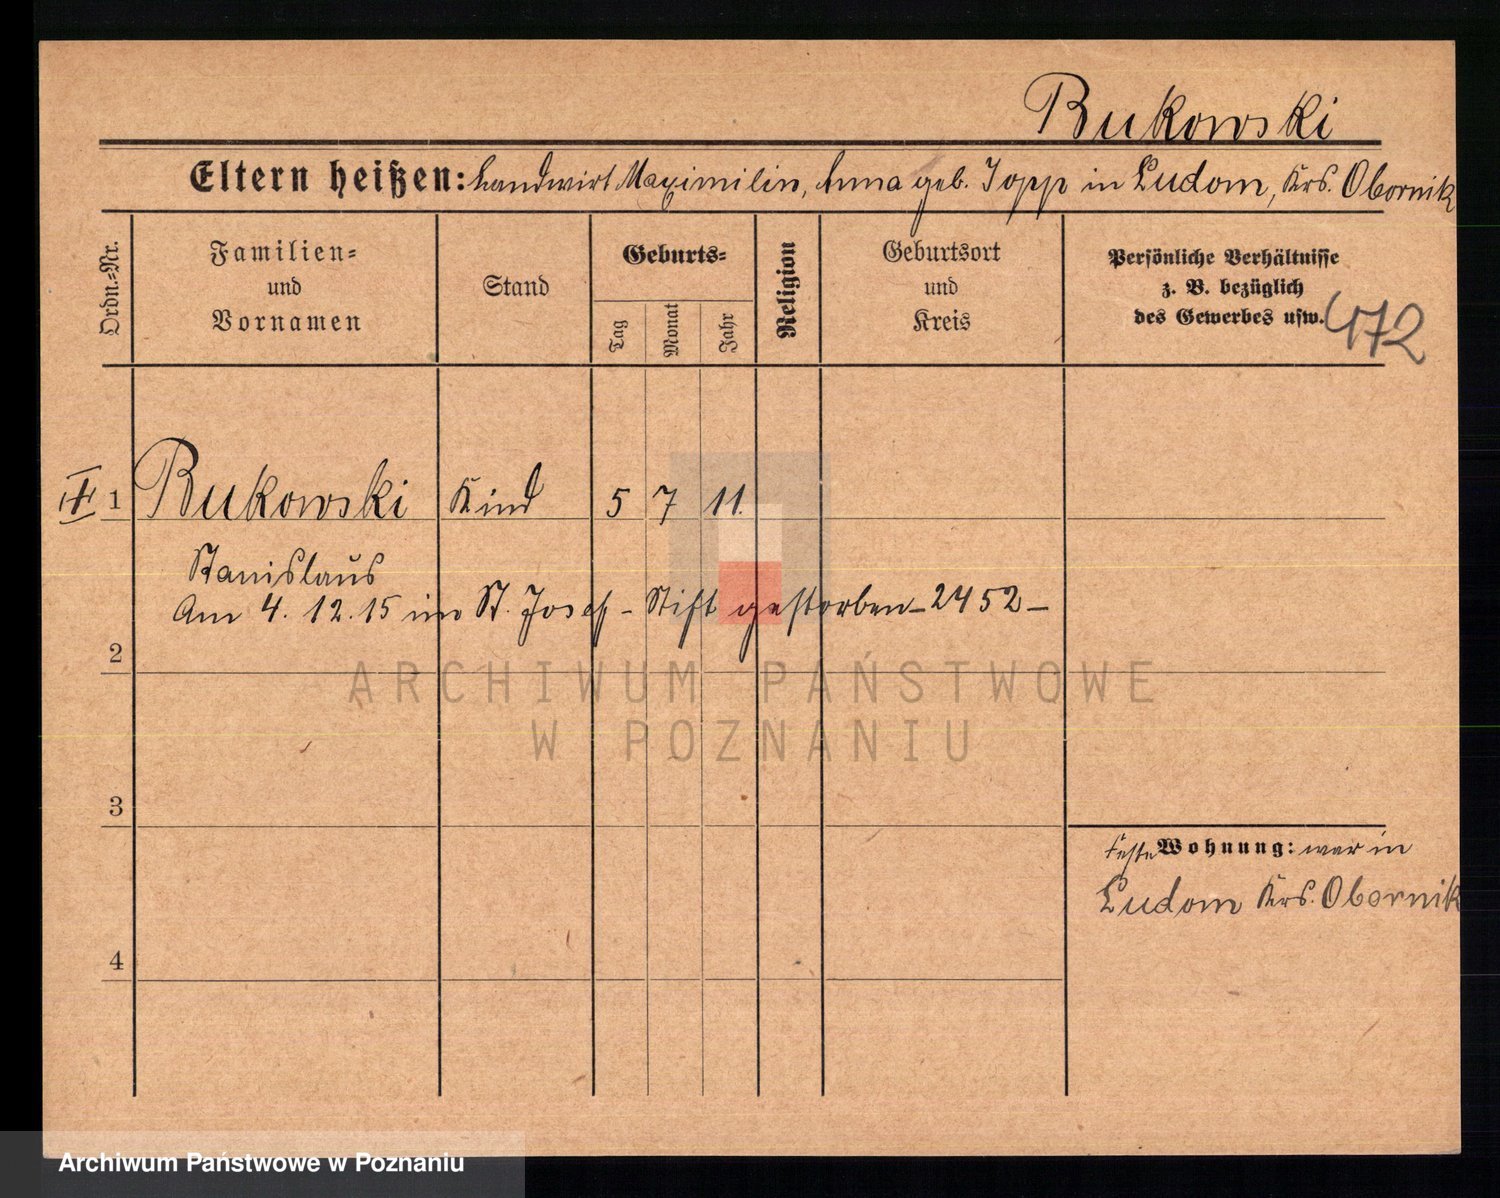 Bukowski
Eltern heißen: Landwirt Maximilin, Anna geb. Jopp in Ludom, Krs. Obornik
Ordn.-Nr.
Familien-
und
Vornamen
Stand
Geburts-
Tag
Monat
Jahr
Religion
Geburtsort
und
Kreis
Persönliche Verhältnisse
z. B. bezüglich
des Gewerbes usw.
472
1 Bukowski Kind 5 7 11.
Stanislaus
Am 4. 12. 15 im St. Josef-Stift gestorben - 2452 -
2
ARCHIWUM PAŃSTWOWE
W POZNANIU
3
Feste Wohnung: war in
Ludom Krs. Obornik
4
Archiwum Państwowe w Poznaniu